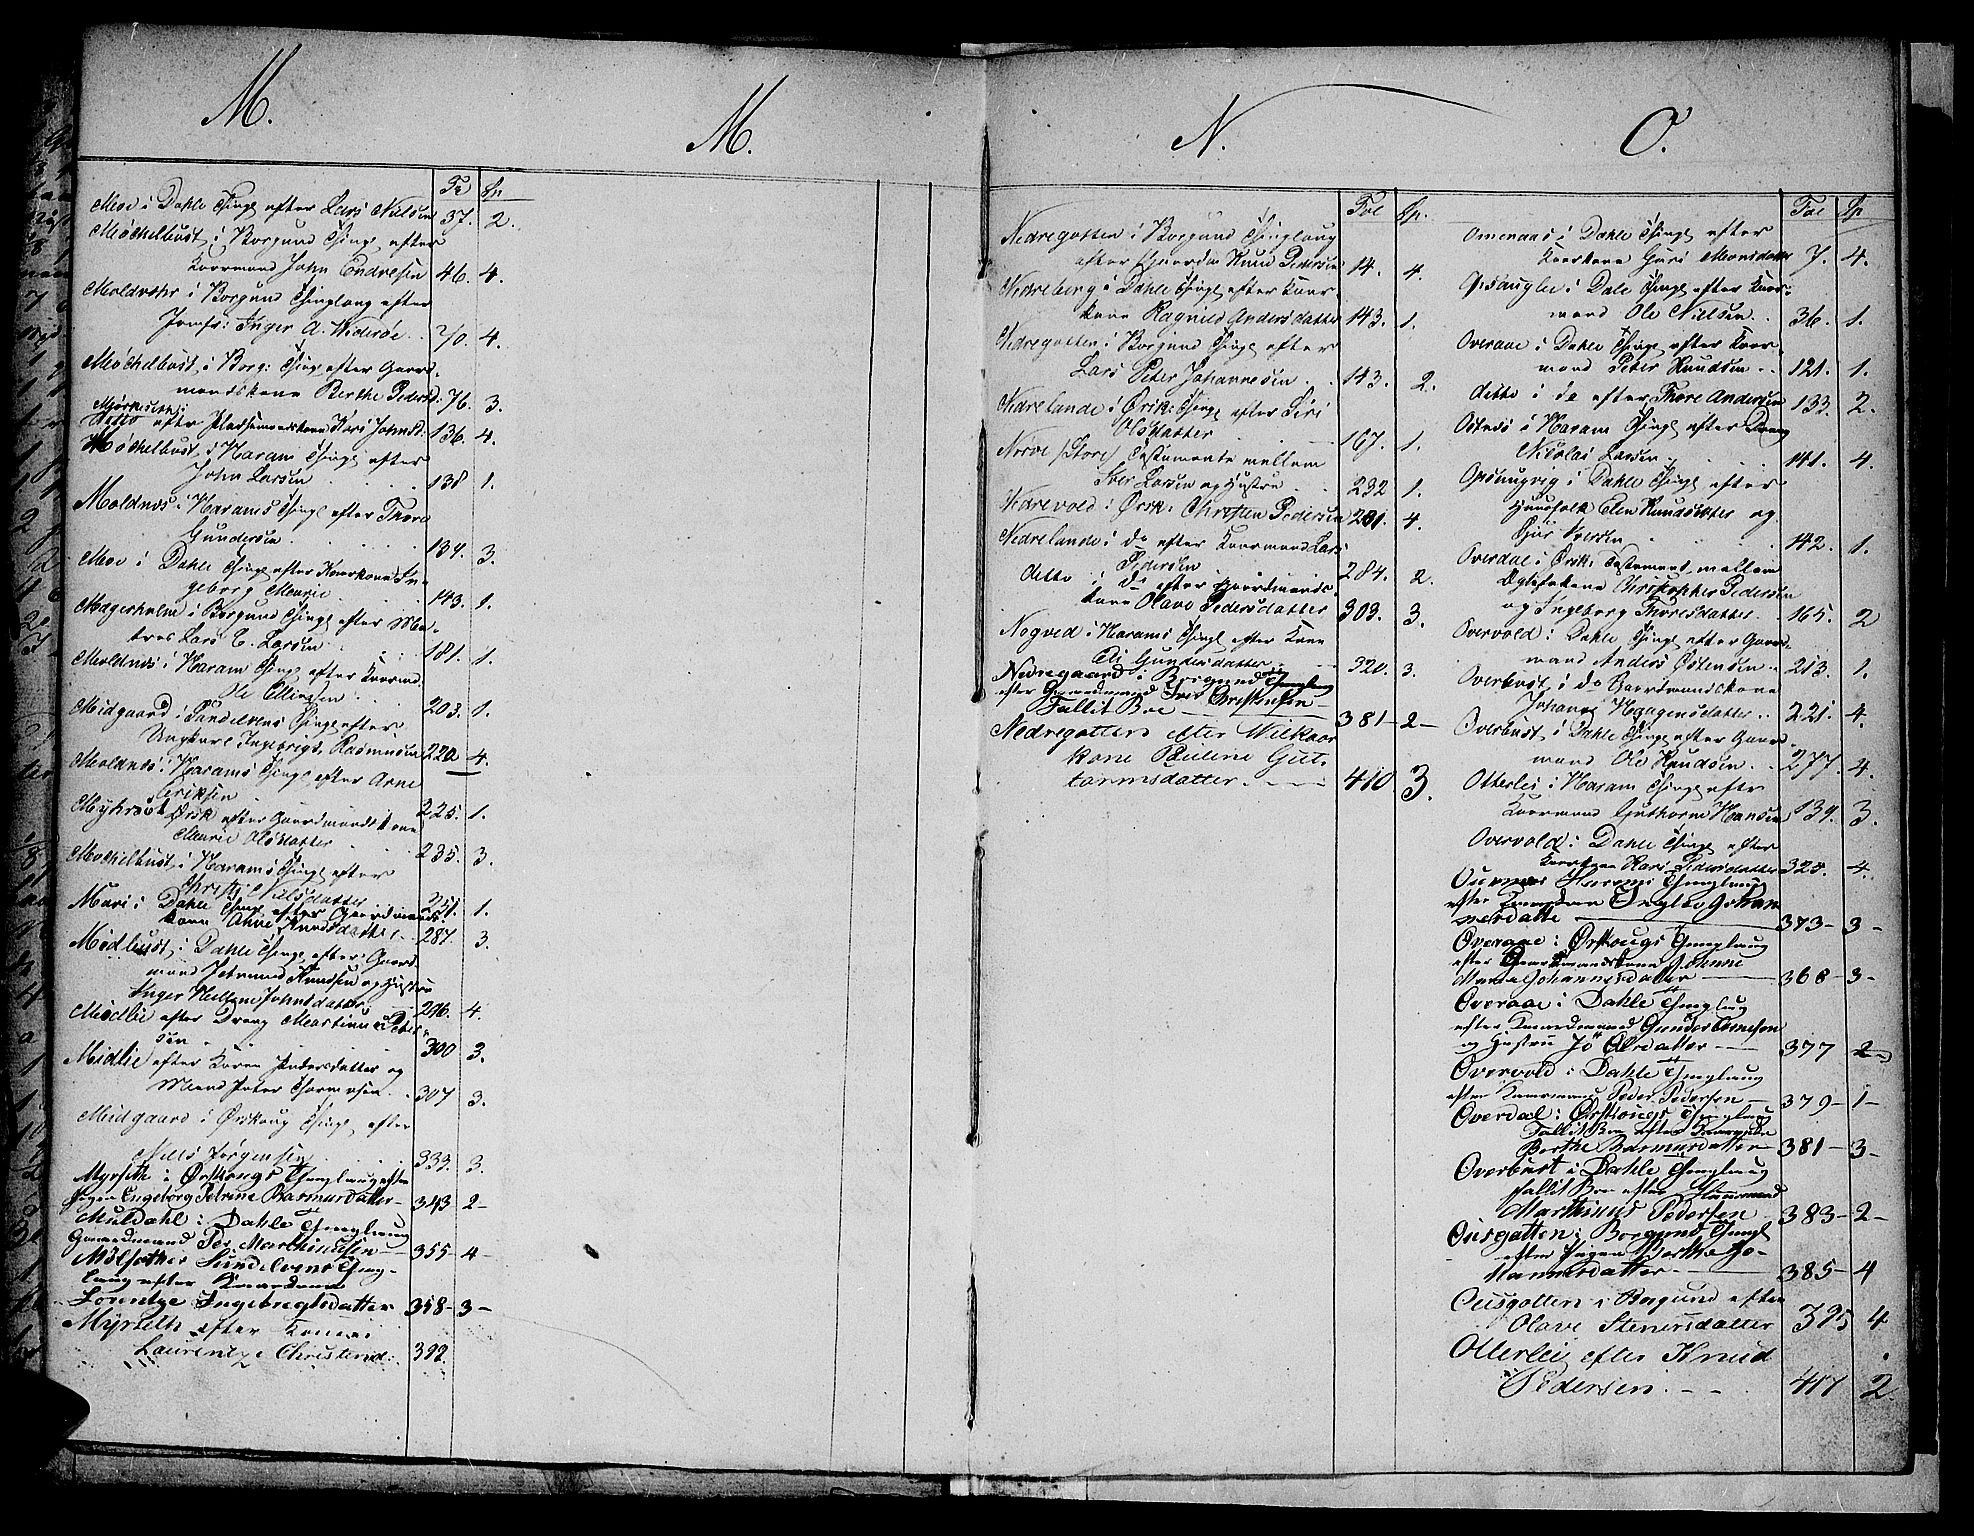 M.
Fo Sp
Moe i Dahle Thingl efter Lars Nielsen 37. 2.
Møchelbust i Borgund Thingl efter
Kaarmand John Endresen 46. 4.
Moldvohr i Borgund Thinglaug efter
Jomfr: Inger A. Widerøe . . 70. 4.
Møchelbust i Borg: Thingl efter Gaard
mandskone Berthe Pedersd: 76. 3.
Mørkesethr:
ditto efter Pladsemandskone Kari Johnsd: 136. 4.
Møchelbust i Haram Thingl efter
John Larsen 138 1.
Moldnes i Harams Thingl efter Thore
Gundersen 139. 3.
Moe i Dahle Thingl efter Kaarkone In-
geborg Marie 143. 1.
Magerholm i Borgund Thingl efter Ma-
tros Lars E. Larsen 181. 1.
Moldnes i Haram Thingl efter Kaarmd
Ole Ellingsen 203. 1.
Midgaard i Sundelvens Thingl efter
Ungkarl Ingebrigt Rasmussen 220 4.
Moldnes i Harams Thingl efter Arne
Eriksen 225. 1.
Myhrsæt Ørsk efter Gaardmandskone
Marie Olsdatter 235. 3.
Mochelbust i Harams Thingl efter
Christj Nilsdatter 251. 1.
Mari i Dahle Thingl efter Gaardmands
kone Ane Knudsdatter 287. 3.
Midbust i Dahle Thingl efter Gaard
mand Johannes Knudsen og Hustru
Inger Helland Johnsdatter 296. 4.
Midlie efter Dreng Martinus Peter
sen 300 3.
Midlie efter Karen Andersdatter og
Mand Peter Thormodsen 307 3.
Midgaard i Ørskoug Thingl efter
Nills Jørgensen 339. 3.
Myrseth i Ørskougs Thinglaug efter
Pigen Engeborg Petrine Rasmusdatter 343 2-
Muldahl i Dahle Thinglaug
Gaardmand Per Marthinussen 355- 4-
Mølsæther Sundelvens Thing-
laug efter Kaarkone
Lorentze Ingebregtsdatter 358- 3-
Myrseth efter Konen
Laurentze Christensd: 392.
M.
N.
Fol Sp.
Nedregotten i Borgund Thinglaug
efter Gaardm Knud Pedersen 14. 4.
Nedreberg i Dahle Thingl efter Kaar-
kone Ragnild Andersdatter 143. 1.
Nedregotten i Borgund Thingl efter
Lars Peter Johannesen . . 143. 2.
Nedrelande i Ørsk: Thingl efter Siri
Olsdatter 167. 1.
Nørve (Store) Testamente mellem
Iver Larsen og Hustru 232 1.
Nedrevold i Ørsk: Christen Pedersen 281. 4.
Nedrelande i do efter Kaarmand Lars
Pedersen 284. 2.
ditto i do efter Gaardmands-
kone Olave Pedersdatter 303. 3.
Nogved i Harams Thingl efter Kone
Eli Gundersdatter 320. 3.
Nedregaard i Borgund Thinglaug
efter Gaardmand Iver Christensen
Fallit Boe 381- 2-
Nedregotten efter Wilkaar
kone Pauline Gut-
tormsdatter 410 3.
O.
Fol Sp
Omenaas i Dahle Thingl efter
Kaarkone Guri Monsdatter 7. 4.
Opsauglie i Dale Thingl efter Kaar-
mand Ole Nielsen . . 36. 1.
Overaae i Dahle Thingl efter Kaar-
mand Peter Knudsen . . 121. 1.
ditto i do efter Thore Andersen 133. 2.
Ostnes i Haram Thingl efter Dreng
Nicolai Larsen 141. 4.
Opsaugvig i Dahle Thingl efter
Huusfolk Elen Knudsdatter og
Sjur Iversen 142. 1.
Overdal i Ørsk: Testament mellem
Ægtefolkene Christopher Pedersen
og Ingeborg Thoresdatter. 165. 2
Overvold i Dahle Thingl efter Gaard-
mand Anders Østensen . . 213. 1.
Overbust i do Gaardmandskone
Johanne Haagensdatter . . 221. 4.
Overbust i Dahle Thingl efter Gaard
mand Ole Knudsen . . 277. 4.
Otterlei i Haram Thingl efter
Kaarmand Guthorm Hansen 139. 3.
Overvold i Dahle Thingl efter
Kaarkone Kari Pedersdatter 328. 4.
Harams Thinglaug
efter Kaarkone Johan
nesdatte 373- 3-
Overaae i Ørskougs Thinglaug
efter Gaardmandskone Johanne
Marta Johannesdatter 368- 3-
Overaae i Dahle Thinglaug
efter Kaardmand Gunder
og Hustru Jo Olsdatter 377 2-
Overvold i Dahle Thinglaug
efter Kaarmand Peder Pedersen 379- 1-
Overdal i Ørskougs Thinglaug
Fallit Boe efter Kaarmand
Berthe Rasmusdatter 381- 3-
Overbust i Dahle Thinglaug
fallit Boe efter Huusmand
Marthinus Pedersen 383- 2-
Ousgotten i Borgund Thingl
efter Pigen Berthe Jo-
hannesdatter 385- 4
Ousgotten i Borgund efter
Olave Stenersdatter 395 4
Otterlei efter Knud
Pedersen . - - 417 2.